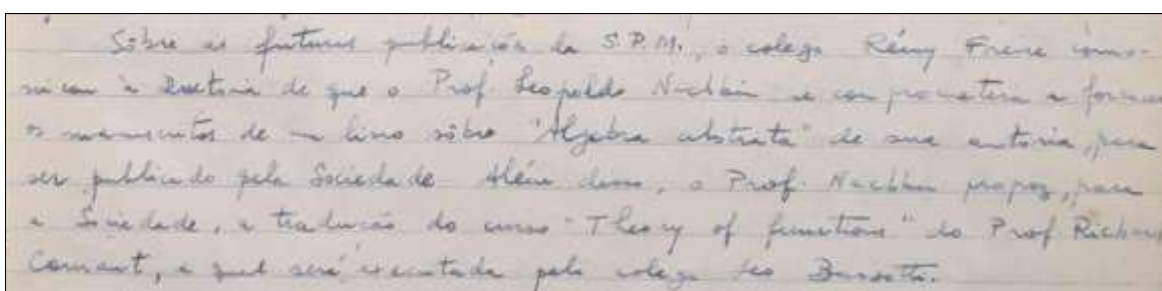 Sôbre as futuras publicações da S.P.M., o colega Rémy Freire comu-
nicou à Diretoria de que o Prof. Leopoldo Nachbin se comprometera a fornecer
os manuscritos de um livro sôbre "Algebra abstrata" de sua autoria, para
ser publicado pela Sociedade. Além disso, o Prof. Nachbin propoz, para
a Sociedade, a tradução do curso "Theory of functions" do Prof Richard
Courant, a qual será executada pelo colega Leo Barsotti.